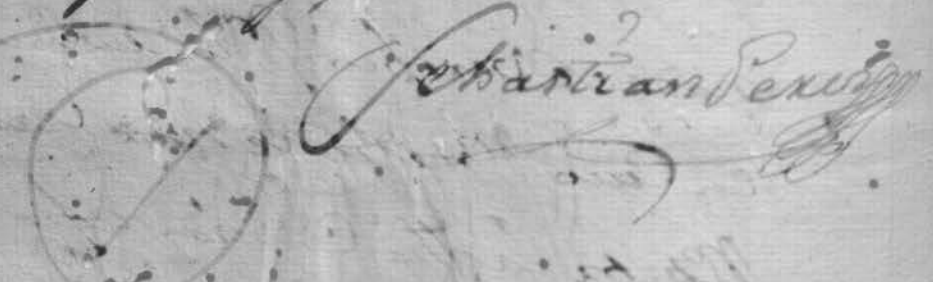 Sebastian Perez